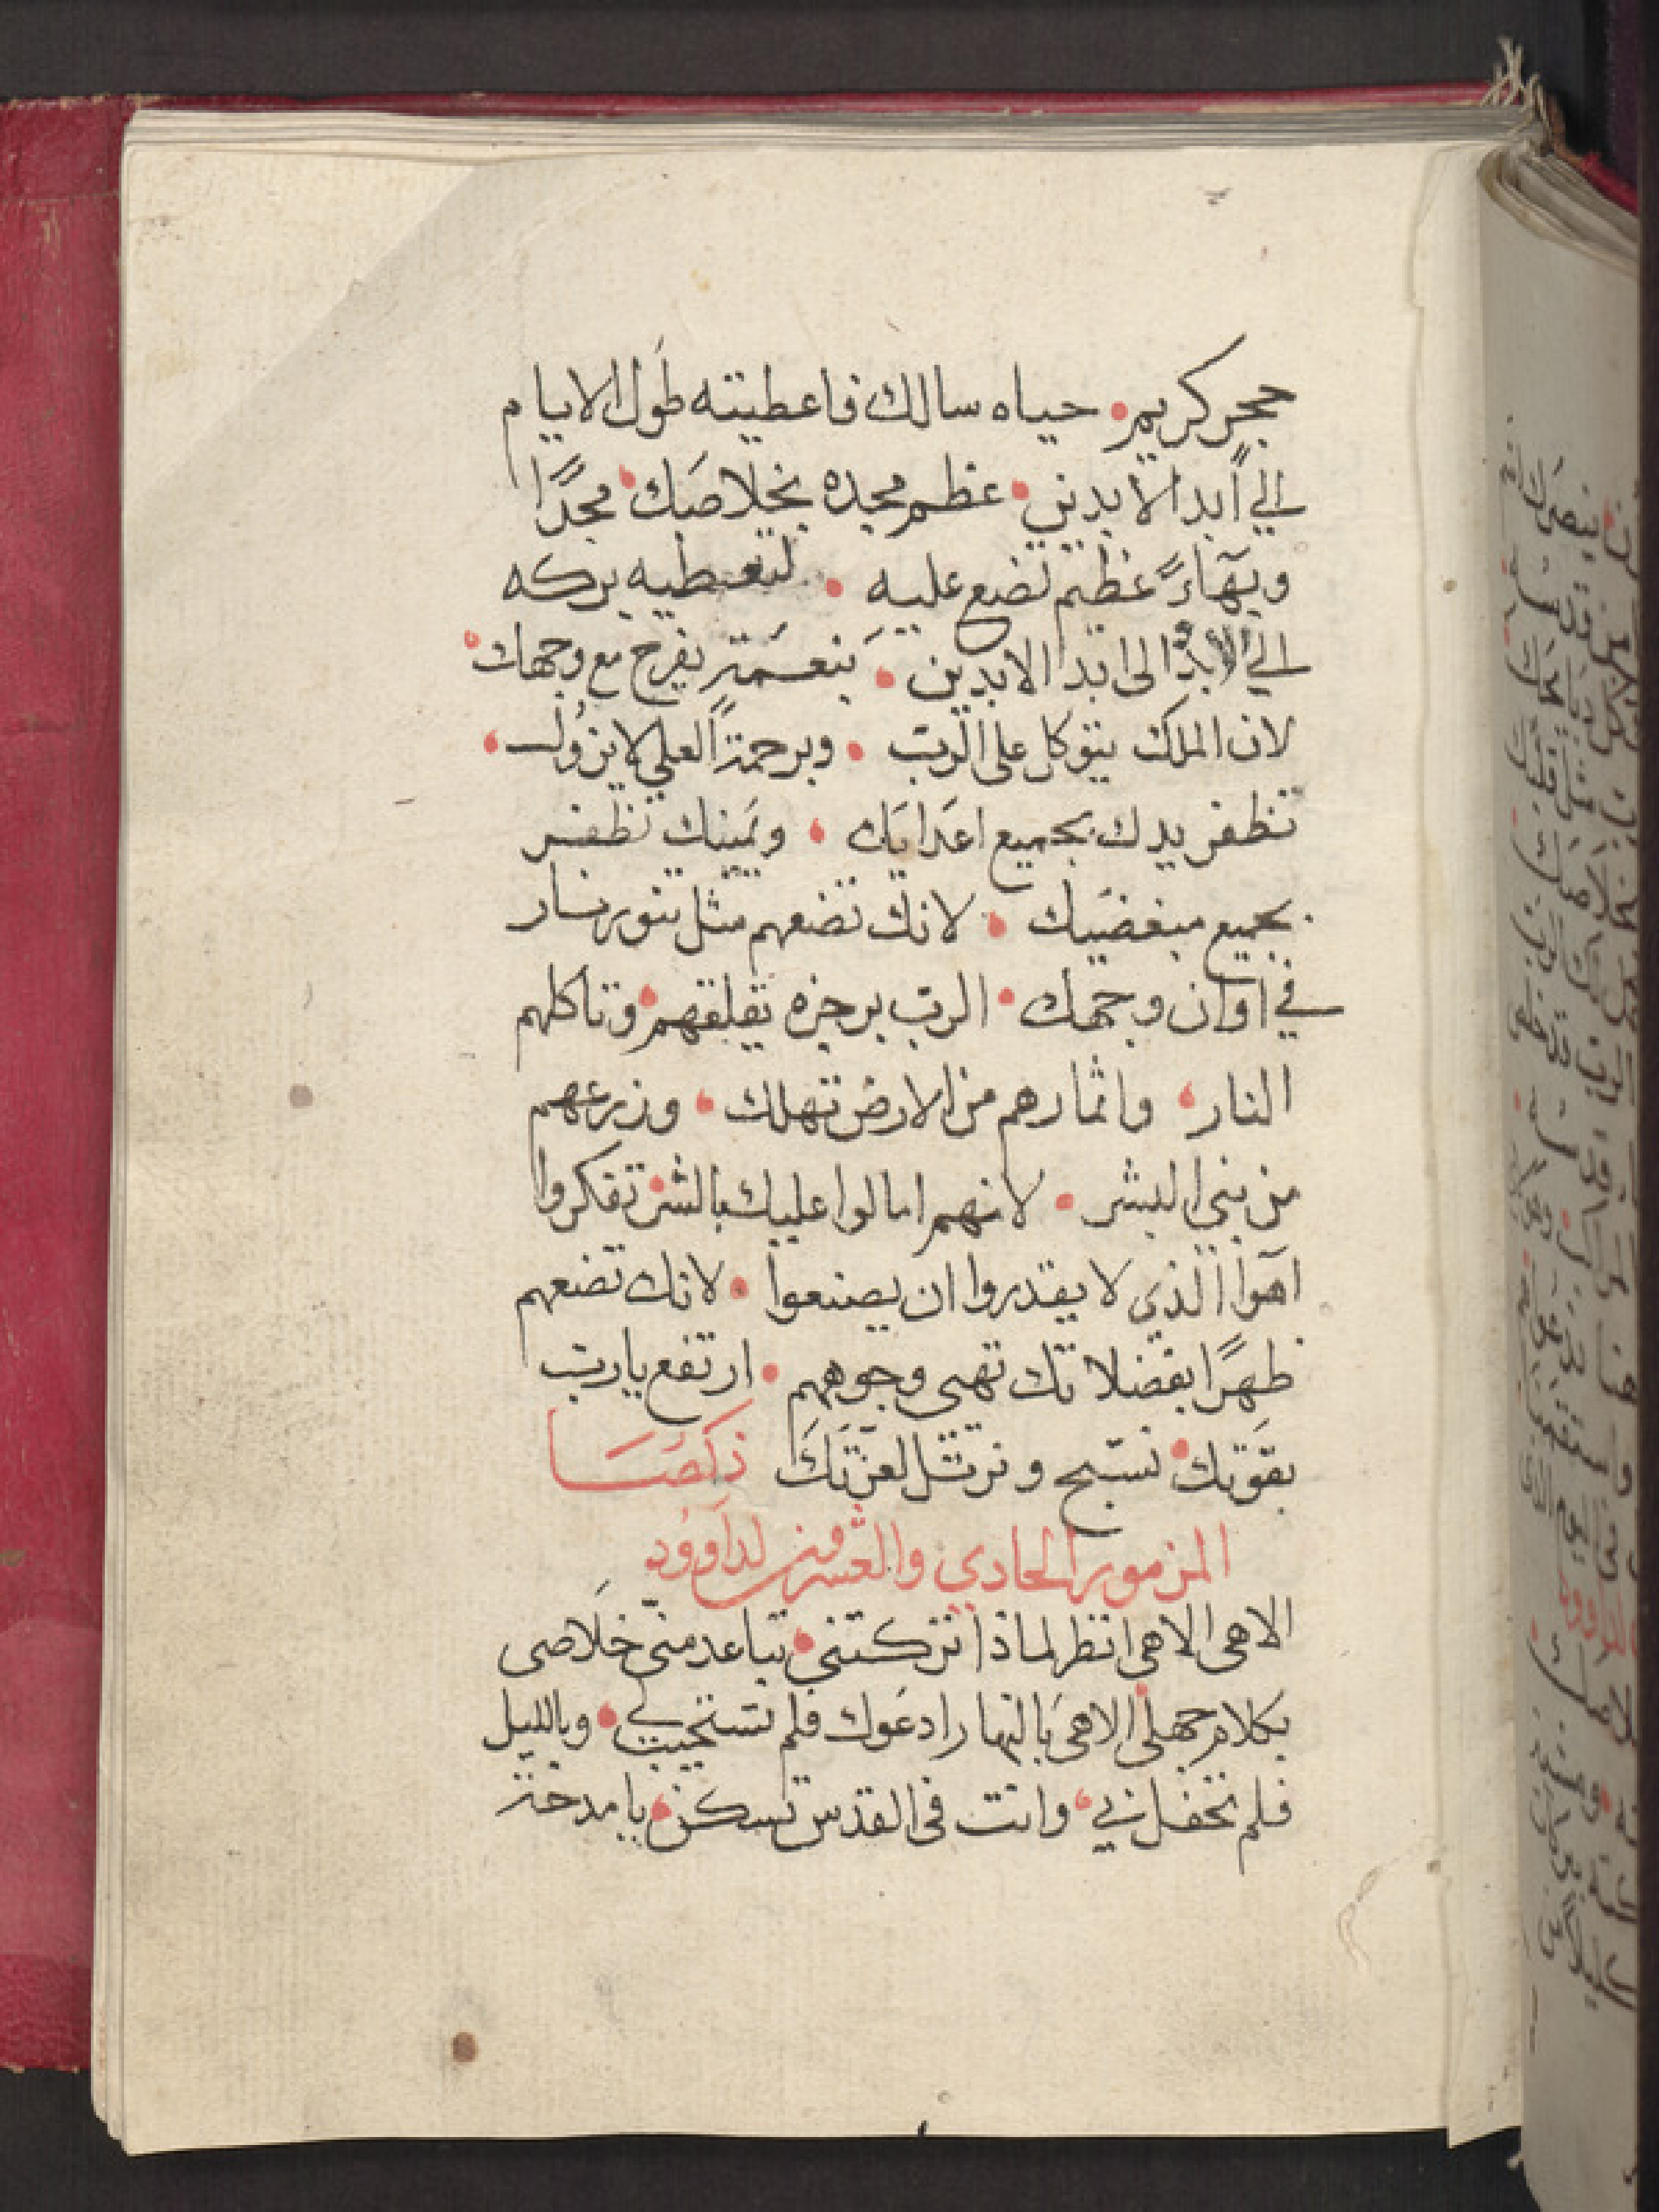 حجر كريم • حياه سالك فاعطيته طَول الايام
الي أبد الابدين • عظم مجده بخلاصَك • مجدًا
وبهَاءً عظيم تضع عليهِ • لتعطيه بركه
الي الأبد الى ابد الابدين • بنعمَة يفرح مع وجهك •
لان الملك يتوكل على الرب • وبرحمة العلي لا يزول •
تظفر يدك بجميع اعدايَك • ويَمينك تظفر
بجميع مبغضيَك • لانك تضعهم مثل تنور نار
في اوان وجهك • الرب برجزه تقلقهم • وتاكلهم
النار • واثمارهم من الارض تهلك • وزرعهم
من بني البشر • لانهم امالوا عليك بالشر • تفكروا
اهوا الذي لا يقدروا ان يصنعوا • لانك تضعهم
ظهرًا بفضلاتك تهى وجوههم • ارتفع يا رب
بقوَتك • نسبّح ونرتل لعزّتَكَ ذكصَا
المزمور الحادي والعشرون لداوود
الاهى الاهى انظر لماذا تركتني • تباعد منّي خلَاصى
بكلام جهلى • الاهىَ بالنهار ادعَوك فلم تستجيب لي • وبالليل
فلم تحفل بي • وانت فى القدس تسكن • يا مدحة